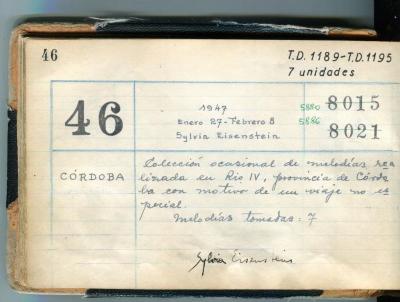 46
T.D. 1189-T.D.1195
7 unidades
46
1947
Enero 27-Febrero 8
Sylvia Eisenstein
5880
8015
5886
8021
CÓRDOBA
Colección ocasional de melodías rea
lizada en Río IV, provincia de Córdo
ba con motivo de un viaje no es
pecial.
Melodías tomadas: 7
Sylvia Eisenstein